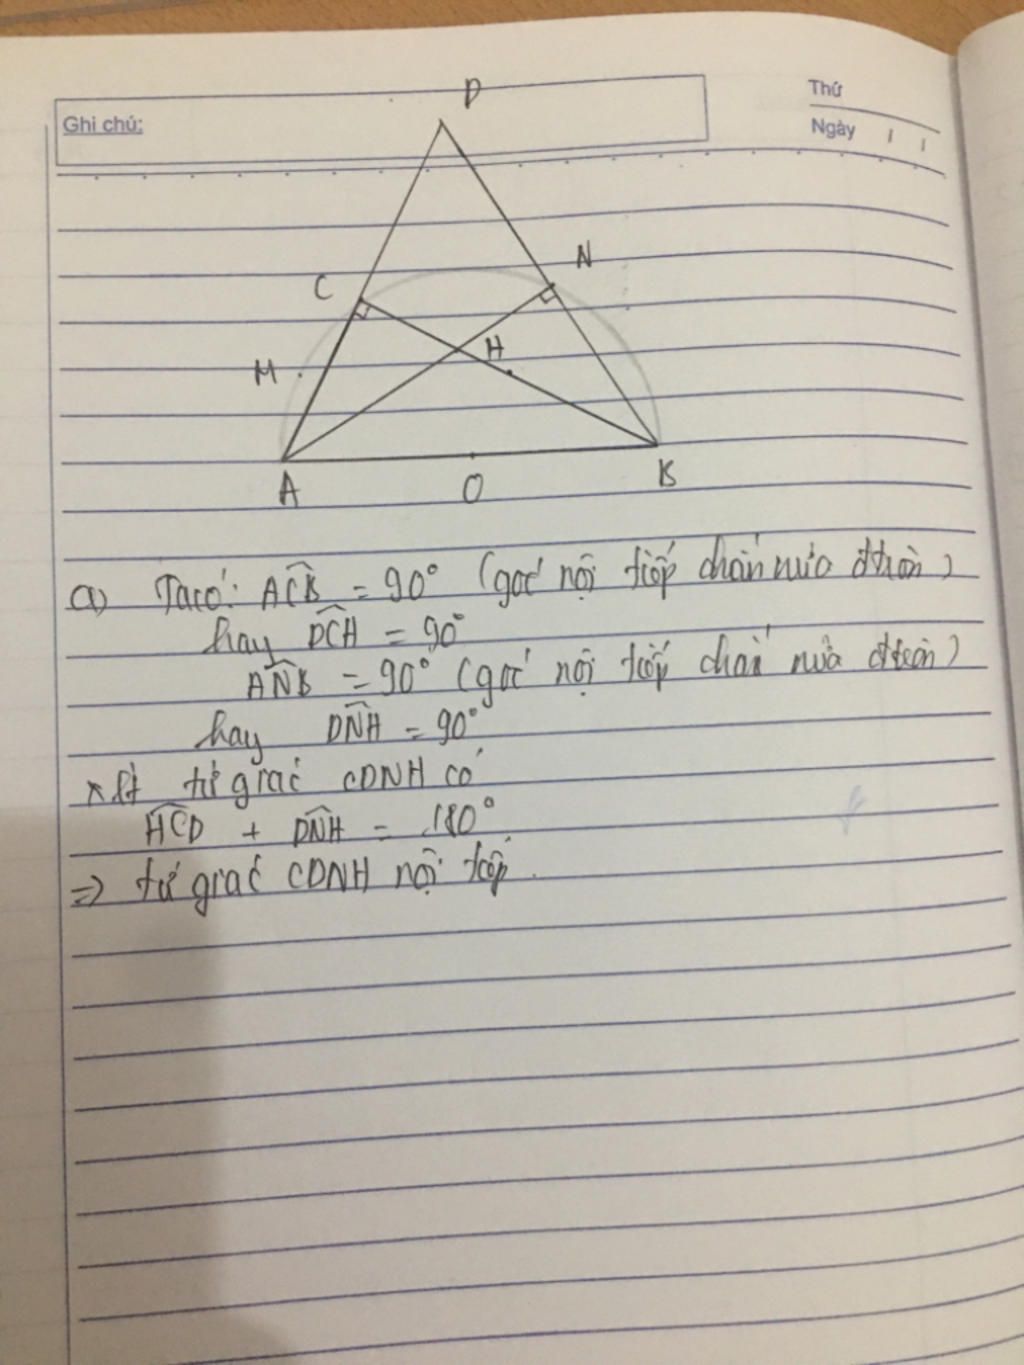 D
Thứ
Ghi chú:
Ngày / /
C
N
M
H
A
O
B
a) Ta có: ACB = 90° (góc nội tiếp chắn nửa đtròn)
hay DCH = 90°
ANB = 90° (góc nội tiếp chắn nửa đtròn)
hay DNH = 90°
Xét tứ giác CDNH có
HCD + DNH = 180°
=> tứ giác CDNH nội tiếp.